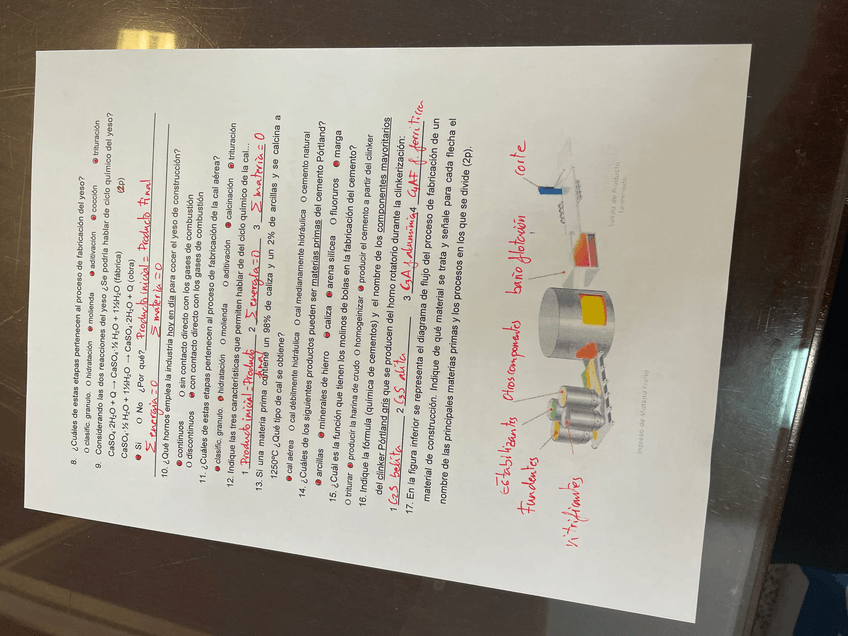 8. ¿Cuáles de estas etapas pertenecen al proceso de fabricación del yeso?
O clasific. granulo. O hidratación ● molienda ● aditivación ● cocción ● trituración
9. Considerando las dos reacciones del yeso ¿Se podría hablar de ciclo químico del yeso?
CaSO₄·2H₂O + Q → CaSO₄·½ H₂O + 1½H₂O (fábrica)
CaSO₄·½ H₂O + 1½H₂O → CaSO₄·2H₂O + Q (obra) (2p)
● Sí O No ¿Por qué? Producto inicial = Producto final
Σ energía = 0 Σ materia = 0
10. ¿Qué hornos emplea la industria hoy en día para cocer el yeso de construcción?
● continuos O sin contacto directo con los gases de combustión
O discontinuos ● con contacto directo con los gases de combustión
11. ¿Cuáles de estas etapas pertenecen al proceso de fabricación de la cal aérea?
● clasific. granulo. ● hidratación O molienda O aditivación ● calcinación ● trituración
12. Indique las tres características que permiten hablar de del ciclo químico de la cal...
1 Producto inicial = Producto final 2 Σ energía = 0 3 Σ materia = 0
13. Si una materia prima contiene un 98% de caliza y un 2% de arcillas y se calcina a
1250ºC ¿Qué tipo de cal se obtiene?
● cal aérea O cal débilmente hidráulica O cal medianamente hidráulica O cemento natural
14. ¿Cuáles de los siguientes productos pueden ser materias primas del cemento Pórtland?
● arcillas ● minerales de hierro ● caliza ● arena silícea O fluoruros ● marga
15. ¿Cuál es la función que tienen los molinos de bolas en la fabricación del cemento?
O triturar ● producir la harina de crudo O homogeinizar ● producir el cemento a partir del clinker
16. Indique la fórmula (química de cementos) y el nombre de los componentes mayoritarios
del clinker Pórtland gris que se producen del horno rotatorio durante la clinkerización:
1 C2S belita 2 C3S alita 3 C3A f. alumínica 4 C4AF f. ferrítica
17. En la figura inferior se representa el diagrama de flujo del proceso de fabricación de un
material de construcción. Indique de qué material se trata y señale para cada flecha el
nombre de las principales materias primas y los procesos en los que se divide (2p).
Estabilizantes otros componentes baño flotación corte
fundentes
vitrificantes
Ingreso de Material Prima
Salida de Producto
Terminado